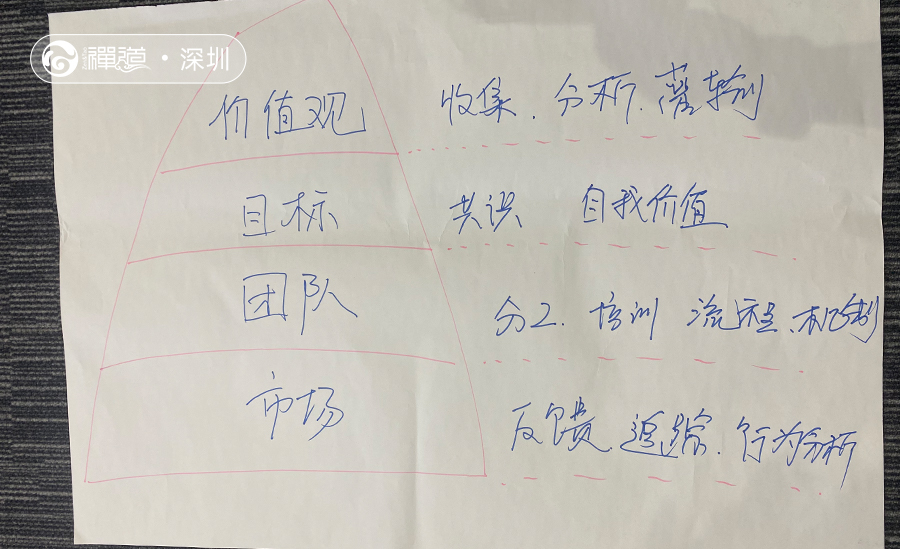 禅道·深圳
价值观 收集.分析.营销
目标 共识 自我价值
团队 分工.培训 流程、机制
市场 反馈.追踪.行为分析